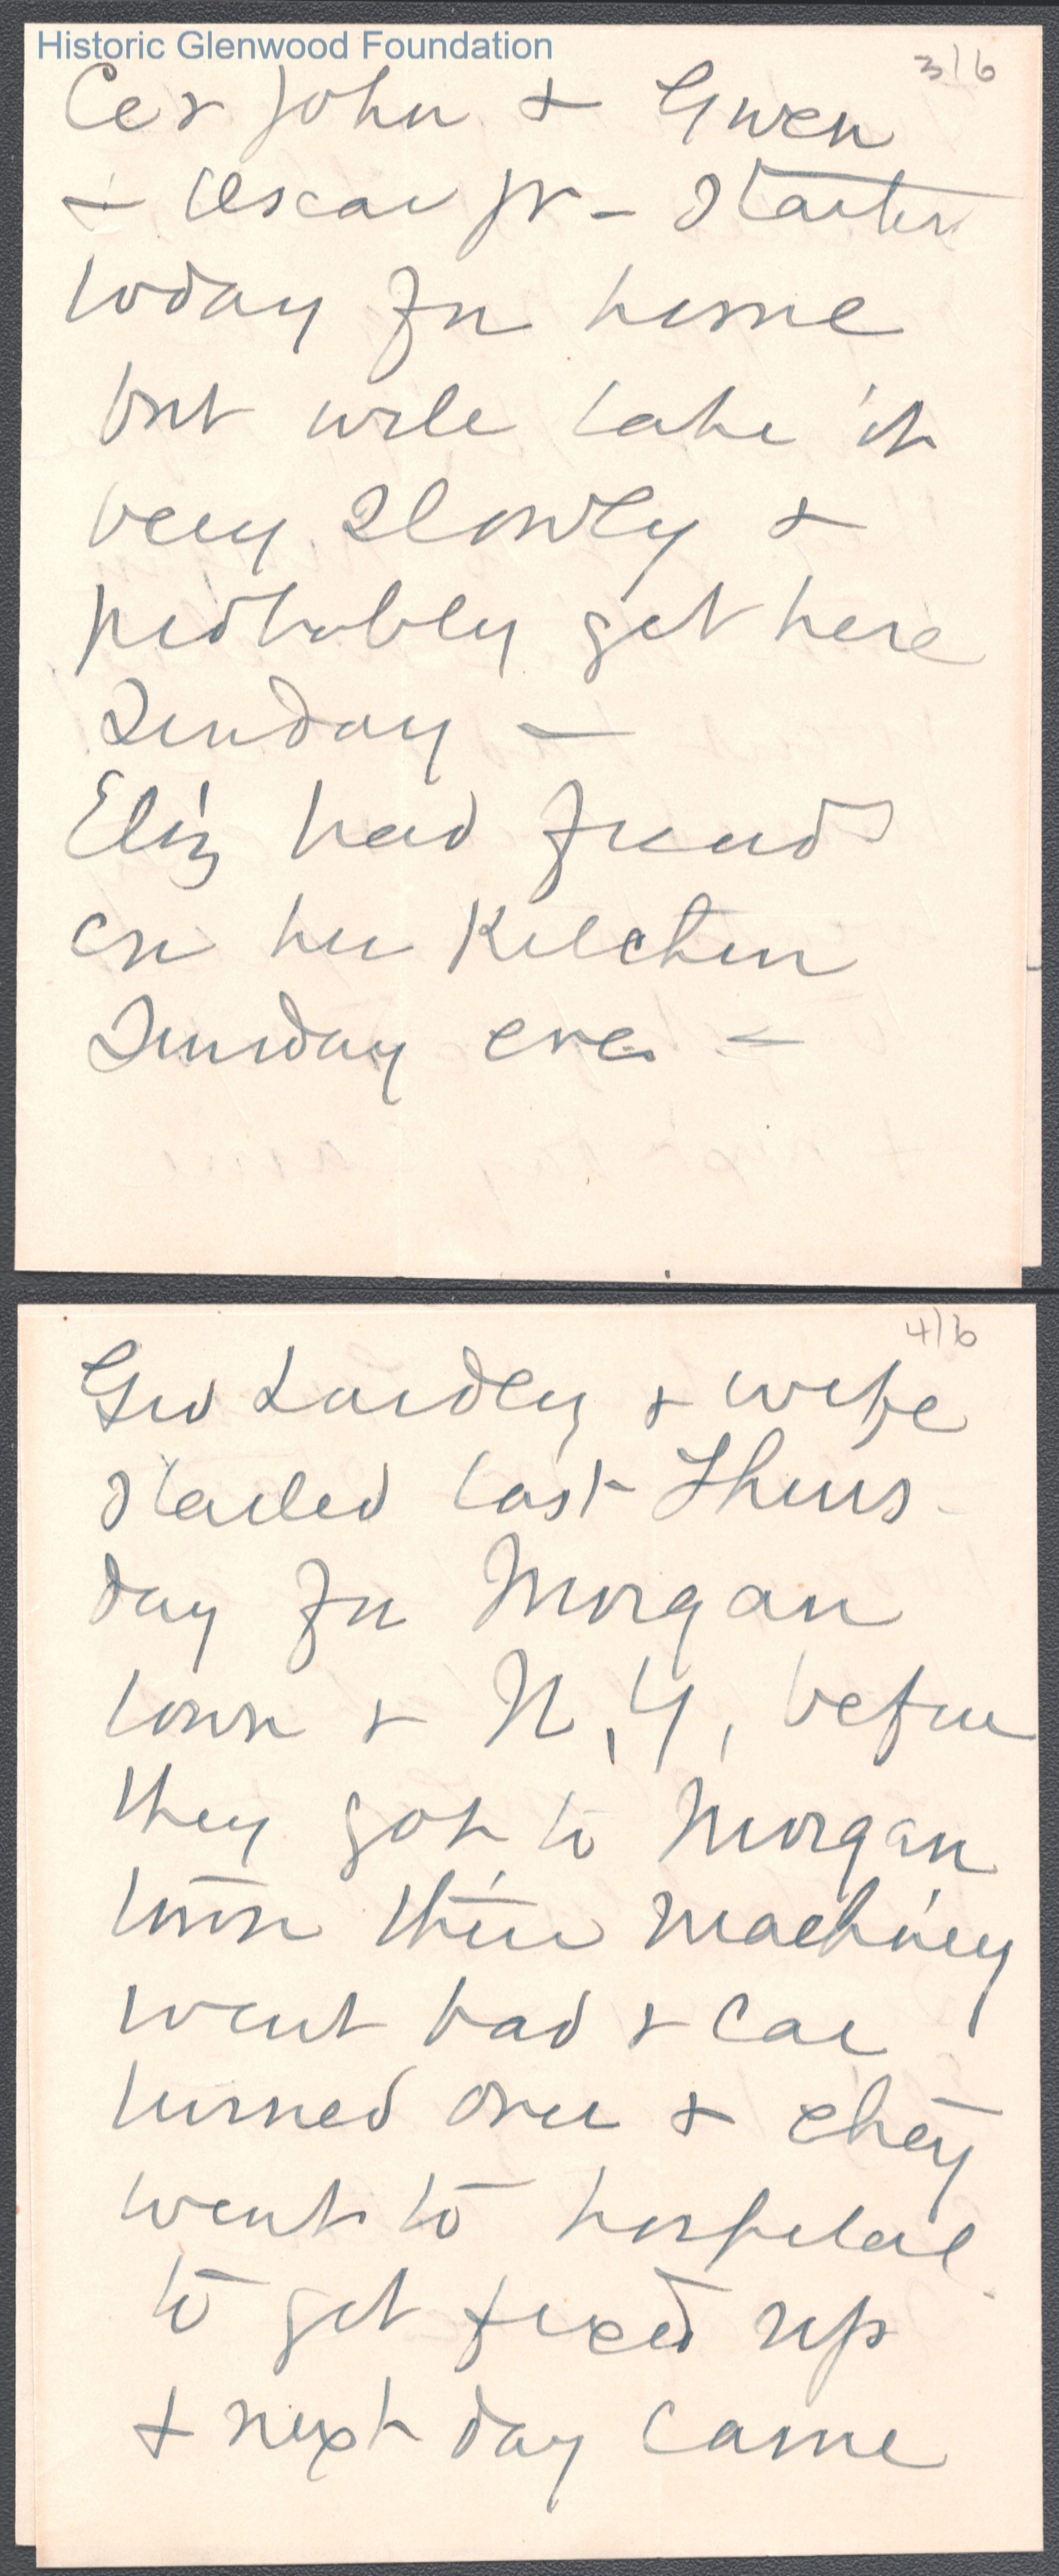 Historic Glenwood Foundation
3/6
John & Gwen
& Oscar Jr - Started
today for home
but will take it
very slowly &
probably get here
Sunday -
Eliz had friends
in her Kitchen
Sunday eve. -
4/6
Geo Lardley & wife
started last Thurs-
day for Morgan
town & N, Y, before
they got to Morgan
town their machinery
went bad & car
turned over & they
went to hospital
to get fixed up
& next day came